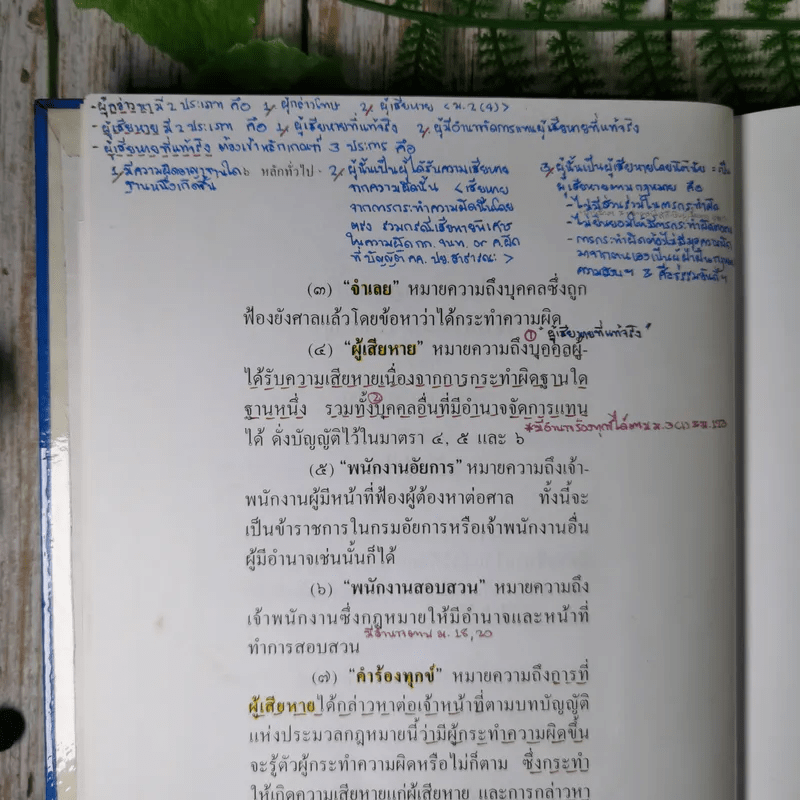 - ผู้กล่าวหา มี 2 ประเภท คือ 1. ผู้กล่าวโทษ 2. ผู้เสียหาย < ม.2(4) >
- ผู้เสียหาย มี 2 ประเภท คือ 1. ผู้เสียหายที่แท้จริง 2. ผู้มีอำนาจจัดการแทนผู้เสียหายที่แท้จริง
- ผู้เสียหายที่แท้จริง ต้องเข้าหลักเกณฑ์ 3 ประการ คือ
1. มีความผิดอาญาฐานใด
ฐานหนึ่งเกิดขึ้น
หลักทั่วไป -
2. ผู้นั้นเป็นผู้ได้รับความเสียหาย
จากความผิดนั้น < เสียหาย
จากการกระทำความผิดนั้นโดย
ตรง รวมกรณีเสียหายพิเศษ
ในความผิด กก. จนท. or ค.ผิด
ที่บัญญัติ
3. ผู้นั้นเป็นผู้เสียหายโดยนิตินัย =
ผู้เสียหายตามกฎหมาย คือ
- ไม่มีส่วนร่วมในการกระทำผิด
- ไม่ยินยอมให้มีการกระทำผิดต่อตน
- การกระทำผิดต้องไม่มีมูลความผิด
มาจากตนเองเป็นผู้ฝ่าฝืน
(๓) “จำเลย” หมายความถึงบุคคลซึ่งถูก
ฟ้องยังศาลแล้วโดยข้อหาว่าได้กระทำความผิด
① "ผู้เสียหายที่แท้จริง"
(๔) “ผู้เสียหาย” หมายความถึงบุคคลผู้-
ได้รับความเสียหายเนื่องจากการกระทำผิดฐานใด
②
ฐานหนึ่ง รวมทั้งบุคคลอื่นที่มีอำนาจจัดการแทน
ได้ ดั่งบัญญัติไว้ในมาตรา ๔, ๕ และ ๖
*มีอำนาจร้องทุกข์ได้ตาม ม.3(1)
(๕) “พนักงานอัยการ” หมายความถึงเจ้า-
พนักงานผู้มีหน้าที่ฟ้องผู้ต้องหาต่อศาล ทั้งนี้จะ
เป็นข้าราชการในกรมอัยการหรือเจ้าพนักงานอื่น
ผู้มีอำนาจเช่นนั้นก็ได้
(๖) “พนักงานสอบสวน” หมายความถึง
เจ้าพนักงานซึ่งกฎหมายให้มีอำนาจและหน้าที่
ทำการสอบสวน
มีอำนาจตาม ม. 18, 20
(๗) “คำร้องทุกข์” หมายความถึงการที่
ผู้เสียหายได้กล่าวหาต่อเจ้าหน้าที่ตามบทบัญญัติ
แห่งประมวลกฎหมายนี้ว่ามีผู้กระทำความผิดขึ้น
จะรู้ตัวผู้กระทำความผิดหรือไม่ก็ตาม ซึ่งกระทำ
ให้เกิดความเสียหายแก่ผู้เสียหาย และการกล่าวหา